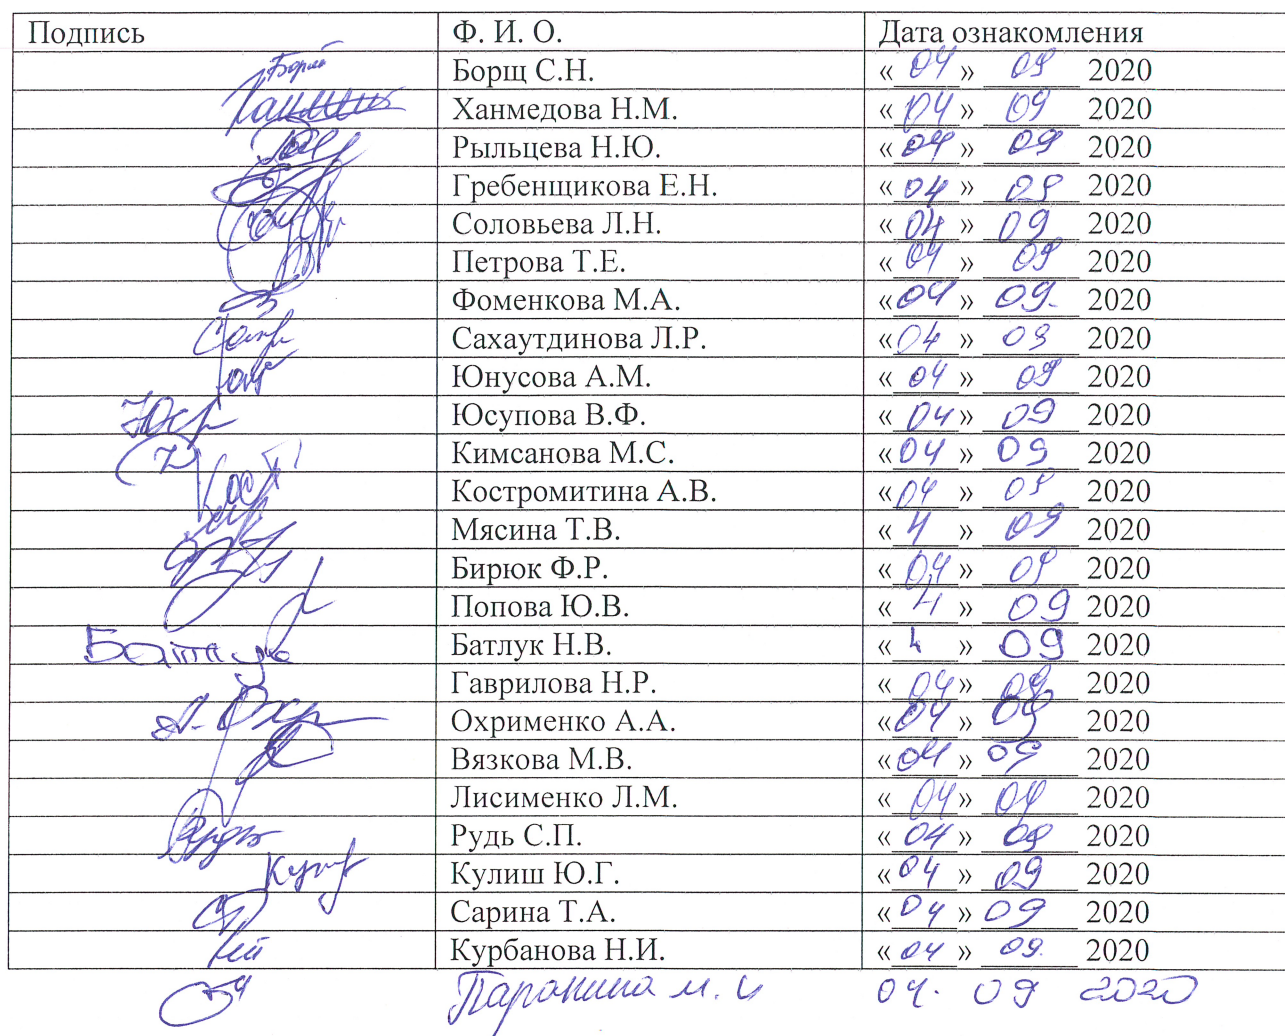 Подпись Ф. И. О. Дата ознакомления
Борщ Борщ С.Н. «04» 09 2020
Ханмедова Н.М. «04» 09 2020
Рыльцева Н.Ю. «04» 09 2020
Гребенщикова Е.Н. «04» 09 2020
Соловьева Л.Н. «04» 09 2020
Петрова Т.Е. «04» 09 2020
Фоменкова М.А. «04» 09. 2020
Сахаутдинова Л.Р. «04» 09 2020
Юнусова А.М. «04» 09 2020
Юсупова В.Ф. «04» 09 2020
Кимсанова М.С. «04» 09 2020
Костромитина А.В. «04» 09 2020
Мясина Т.В. «4» 09 2020
Бирюк Ф.Р. «04» 09 2020
Попова Ю.В. «4» 09 2020
Батлук Батлук Н.В. «4» 09 2020
Гаврилова Н.Р. «04» 09 2020
Охрименко А.А. «04» 09 2020
Вязкова М.В. «04» 09 2020
Лисименко Л.М. «04» 09 2020
Рудь С.П. «04» 09 2020
Кулиш Ю.Г. «04» 09 2020
Сарина Т.А. «04» 09 2020
Курбанова Н.И. «04» 09. 2020
Паранина М. И 04. 09 2020